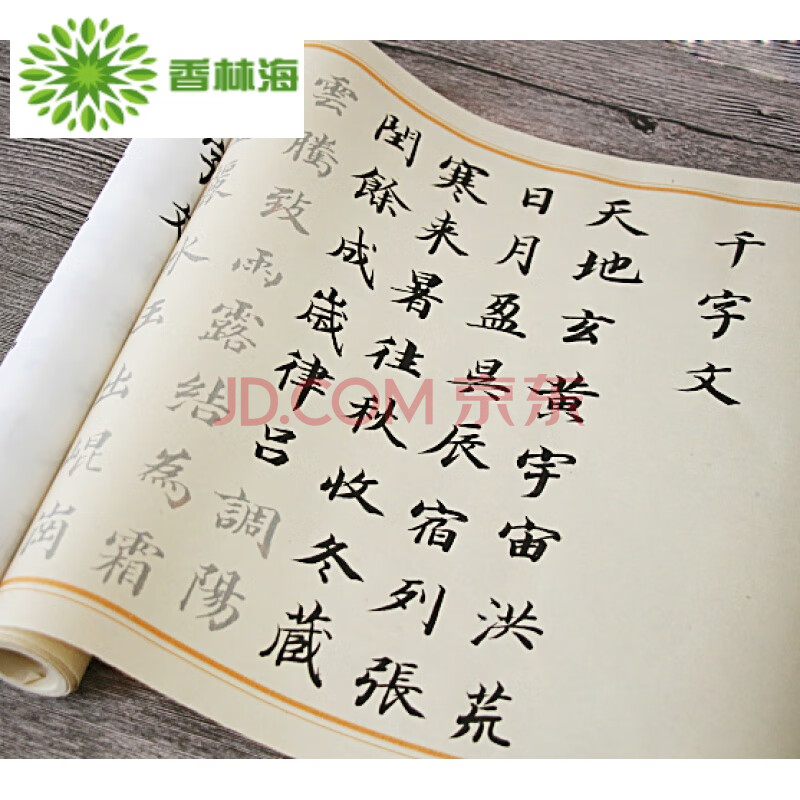 香林海
千字文
天地玄黄宇宙洪荒
日月盈昃辰宿列張
寒来暑往秋收冬蔵
閏餘成歳律吕調陽
雲騰致雨露結為霜
水玉出崐崗
JD.COM 京东